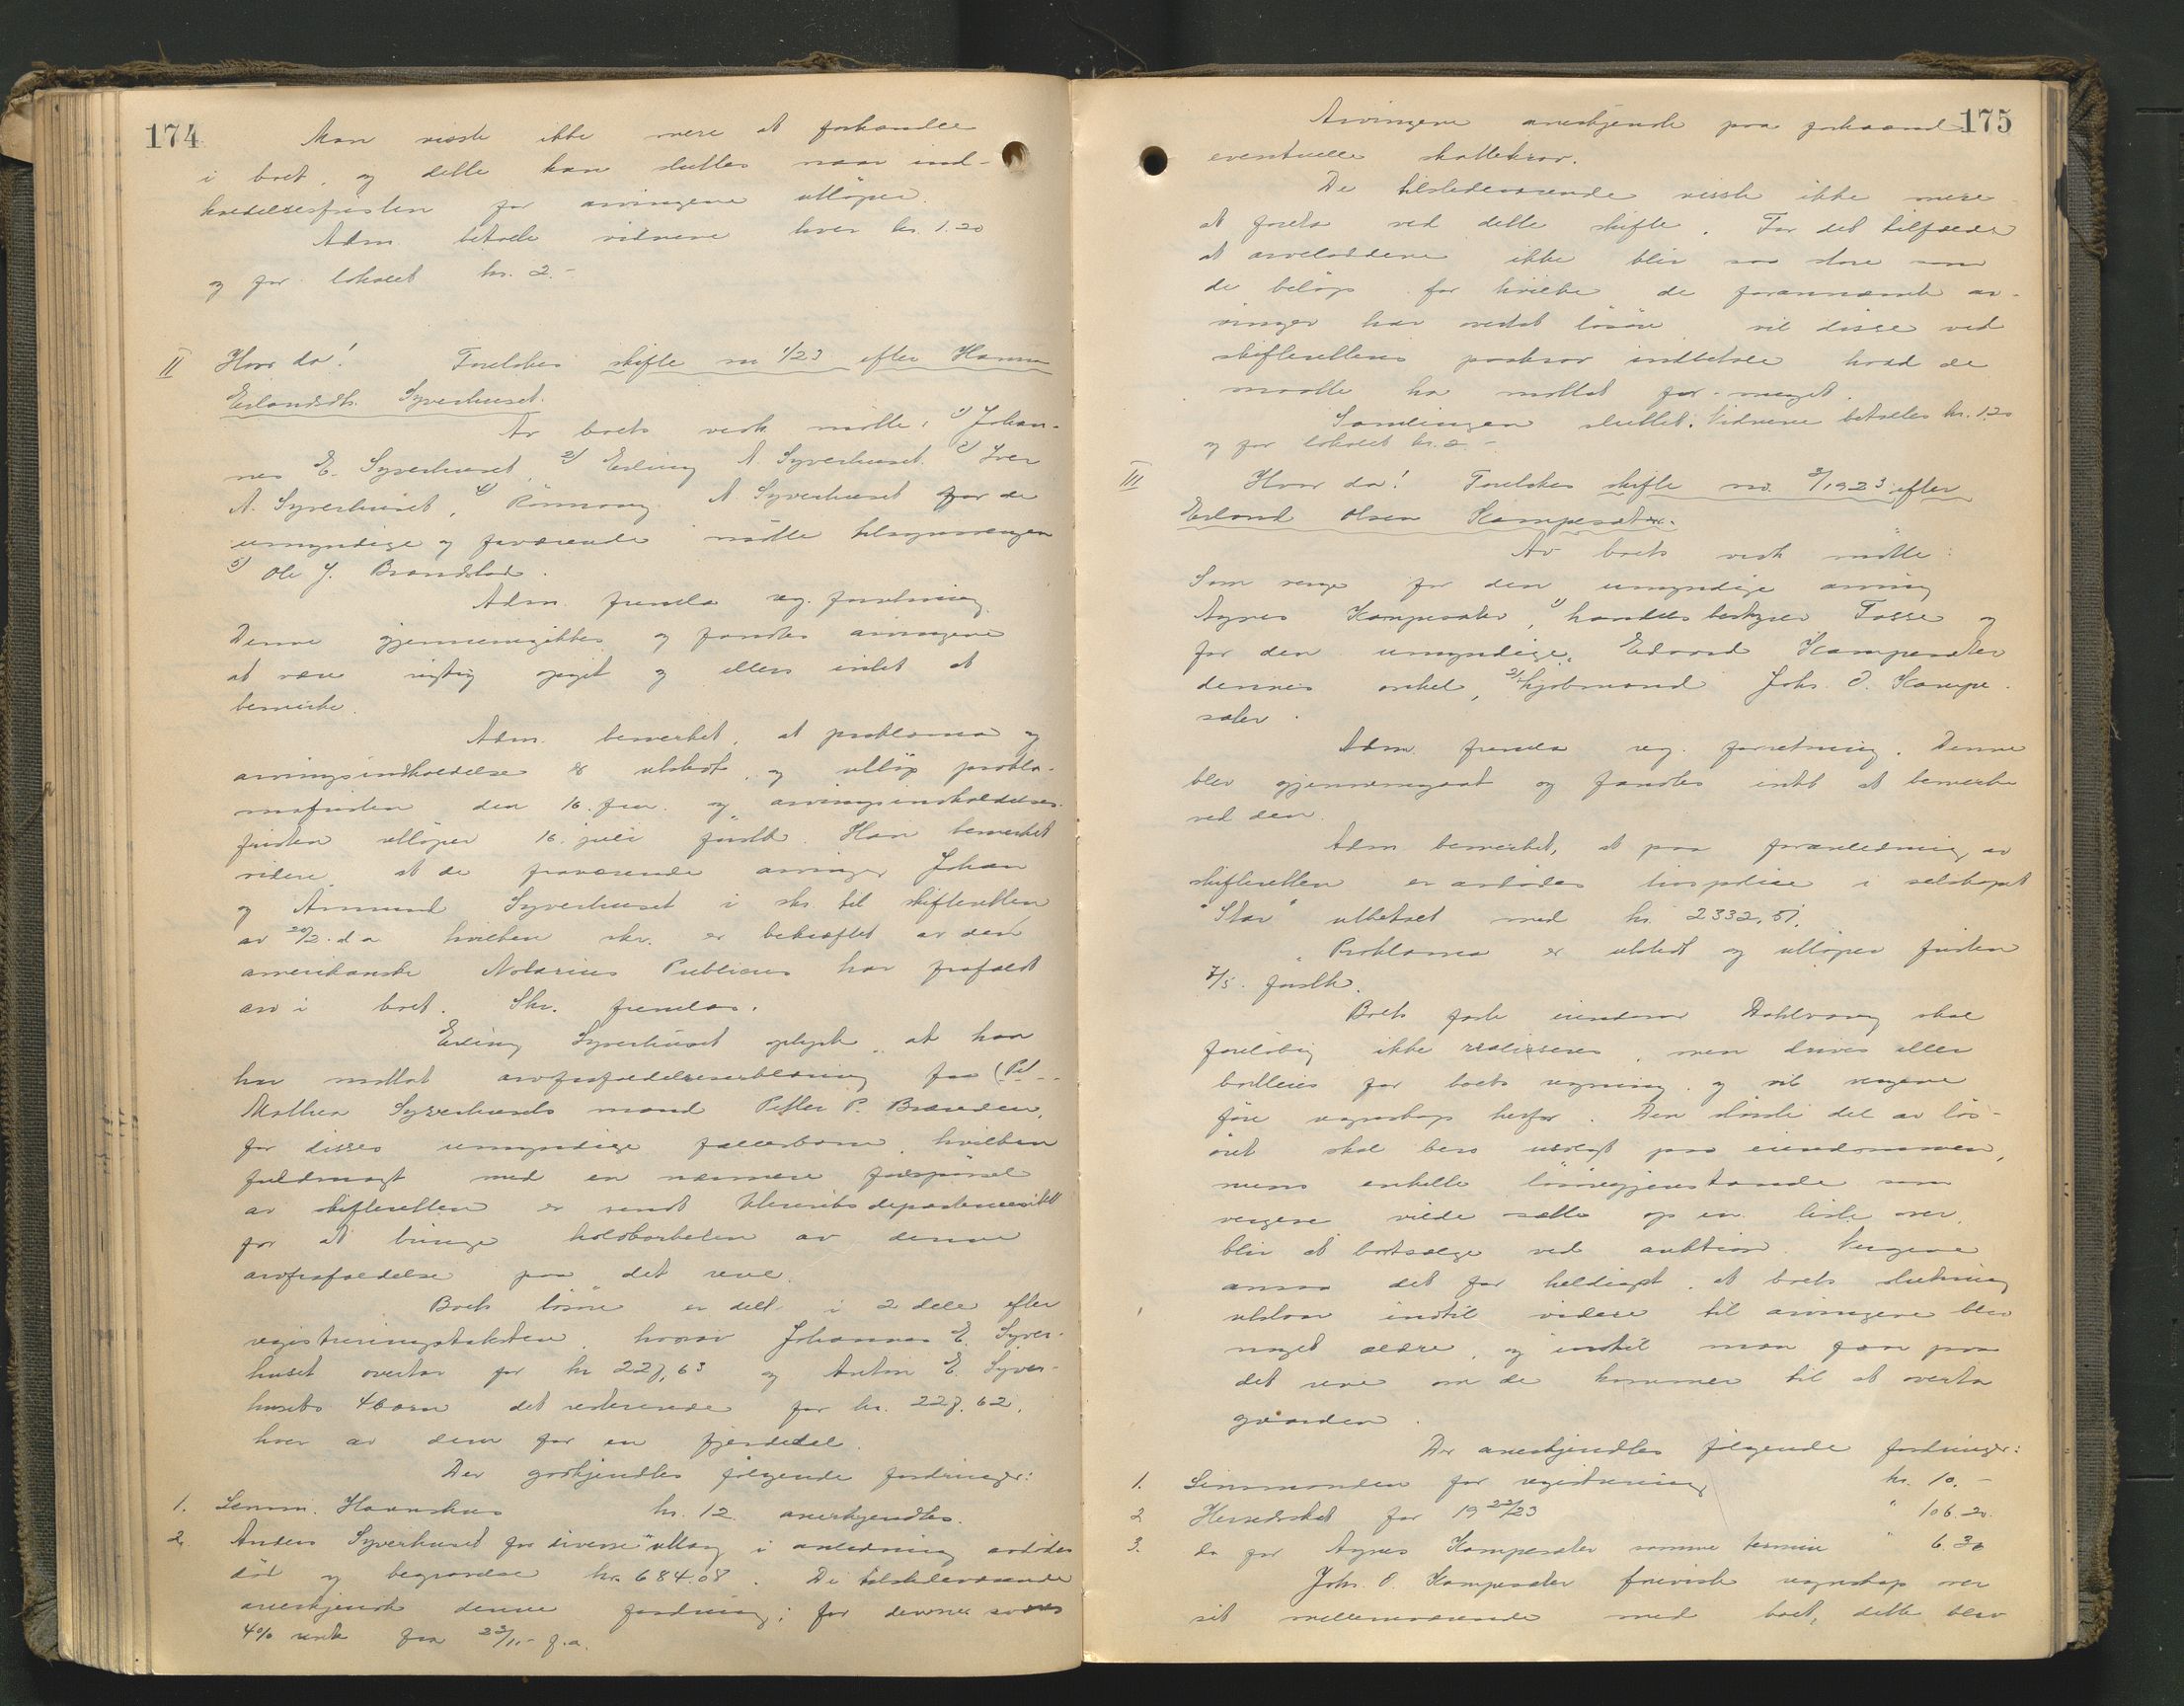 174
Man visste ikke mere at forhandle
i boet, og dette kan sluttes naar ind-
kaldelsesfristen for arvingene utløper.
Adm. betalte vidnene hver kr. 1.20
og for lokalet kr. 2.-
II Hvor da! Foretokes skifte nr 1/23 efter Hanna
Erlandsdt. Syverhuset.
Av boets vedk. møtte: 1) Johan-
nes E. Syverhuset 2) Erling A. Syverhuset. 3) Iver
A. Syverhuset, 4) Rönnaug A. Syverhuset for de
umyndige og fraværende møtte tilsynsvergen
5) Ole J. Brandstad.
Adm. fremla reg. forretning.
Denne gjennemgikkes og fandtes arvingene
at være rigtig opgit og ellers intet at
bemerke.
Adm. bemerket, at proklama og
arvingsindkaldelse er utstedt, og utløp prokla-
mafristen den 16. og arvingsindkaldelses-
fristen utløper 16. juli førstk. Han bemerket
videre at de fraværende arvinger Johan
og Amund Syverhuset i skr. til skifteretten
av 20/2 d.a. hvilken skr. er bekræftet av den
amerikanske Notarius Publicus har frafaldt
arv i boet. Skr. fremlaa.
Erling Syverhuset oplyste, at han
har mottat arvefrafaldelseserklæring fra
Mathea Syverhusets mand Petter P. Braenden,
for disses umyndige fællesbarn, hvilken
fuldmagt med en nærmere forespørsel
av skifteretten er sendt Utenriksdepartementet
for at bringe holdbarheten av denne
arvefrafaldelse paa det rene.
Boets løsøre er delt i 2 dele efter
registreringstaksten hvorav Johannes E. Syver-
huset overtar for kr 227,63 og Anton E. Syver-
husets 4 barn det resterende for kr. 227.62,
hver av dem for en fjerdedel.
Der godkjendtes følgende fordringer:
1. Lensm. Haavnshus kr. 12 anerkjendtes.
2 Anders Syverhuset for diverse utlæg i anledning avdødes
død og begravelse kr. 684.08. De tilstedeværende
anerkjendte denne fordring; for denne svares
4% rente fra 23/11- f.a.
175
Arvingene anerkjendte paa forhaand
eventuelle skattekrav.
De tilstedeværende visste ikke mere
at foreta ved dette skifte. For det tilfælde
at arveloddene ikke blir saa store som
de beløp for hvilke de forannævnte ar-
vinger har overtat løsøre vil disse ved
skifterettens paakrav indbetale hvad de
maatte ha mottat for meget.
Samlingen sluttet. Vidnene betaltes kr. 1.20
og for lokalet kr. 2.-
III Hvor da! Foretokes skifte no. 3/1923 efter
Erland Olsen Kampesæter.
Av boets vedk møtte:
Som verge for den umyndige arving
Agnes Kampesæter, 1) handelsbestyrer Fosse og
for den umyndige Edvard Kampesæter
dennes onkel, 2) kjøbmand Johs. O. Kampe-
sæter.
Adm. fremla reg. forretning. Denne
blev gjennemgaat og fandtes intet at bemerke
ved den.
Adm bemerket, at paa foranledning av
skifteretten er avdødes livspolice i selskapet
"Star" utbetalt med kr. 2332.51.
Proklama er utstedt og utløper fristen
7/5. førstk.
Boets faste eiendom Dahlvang skal
foreløbig ikke realiseres, men drives eller
bortleies for boets regning og vil vergene
føre regnskap herfor. Den største del av løs-
øret skal bero usolgt paa eiendommen,
mens enkelte løsøregjenstande som
vergene vilde sætte op en liste over
blir at bortsælge ved auktion. Vergene
ansaa det for heldigst, at boets slutning
utstaar indtil videre til arvingene blev
noget ældre, og indtil man faar paa
det rene om de kommer til at overta
gaarden.
Der anerkjendtes følgende fordringer:
1. Lensmanden for registrering kr. 10.-
2 Herredsskat for 1922/23 " 106.20.
3. do for Agnes Kampesæter samme termin " 6.30
Johs. O. Kampesæter foreviste regnskap over
sit mellemværende med boet, dette blev